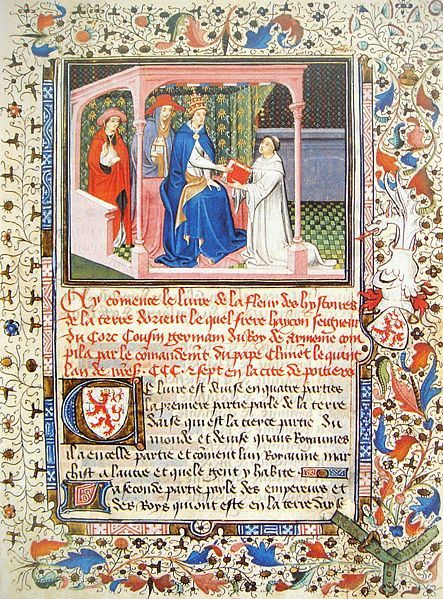 Cy cōmence le liure de la fleur des hystoires
de la terre dorient le quel frere hayton seigneur
du Corc Cousin germain du Roy de armenie com
pila par le comandemēt du pape Climēt le quint
lan de CCC . 7 sept en la cite de poitiers
Ce liure est deuise en quatre parties
la premiere partie parle de la terre
dasie qui est la tierce partie du
monde et deuise quans Royaumes
il a en celle partie et cōment lun Royaume mar
chist a lautre et quele gent y habite
La seconde partie parle des empereurs et
des Roys qui ont este en la terre dasie